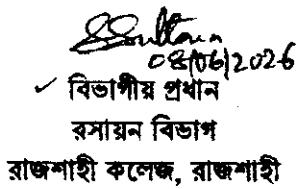 08/06/2026
✓ বিভাগীয় প্রধান
রসায়ন বিভাগ
রাজশাহী কলেজ, রাজশাহী